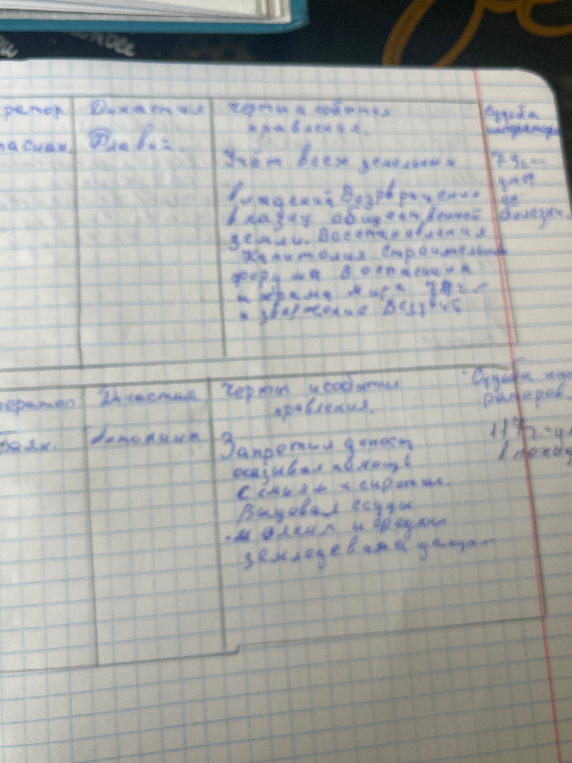 ратор
Династия
Черты и события
правления.
Судьба
императора
Флавий.
Учёт всех земельных
владений Возвращение
в казну общественной
земли. Восстановления
Капитолия Строительны
форума Воспасиана
и храма Мира 79 г
извержение Везувий
79г-
умер
от
болезни.
ператор
Династия
Черты и события
правления.
Судьба
раперов.
Траян.
Антонины
Запретил доносы
оказывал помощь
семьям и сиротам.
Выдовал ссуды
мелким и средним
117г-ум